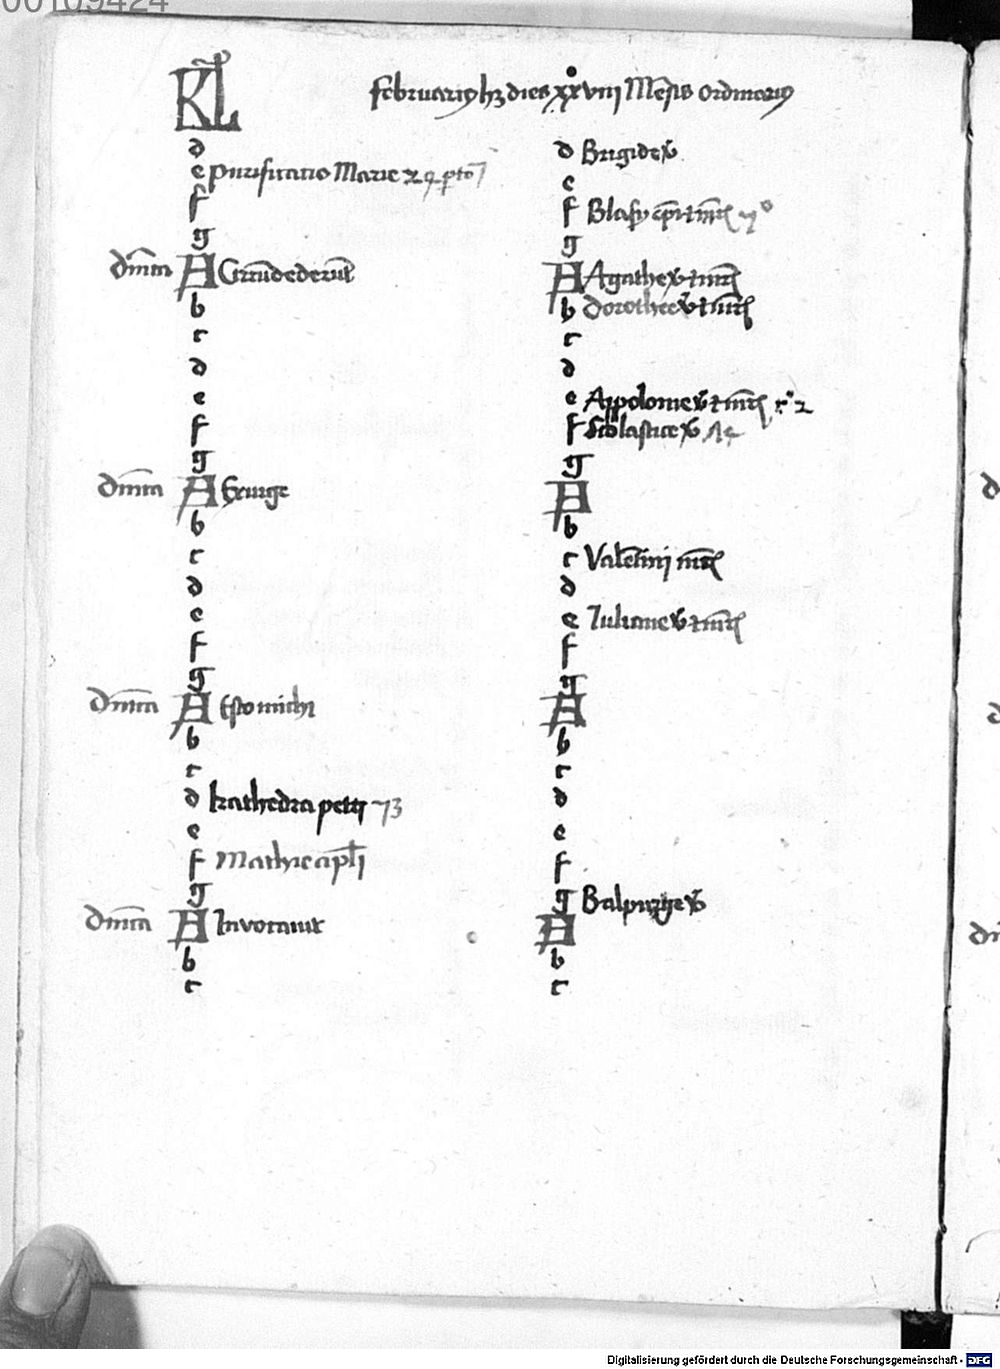 00109424
KL
februarius hz dies xxviij Mensis ordinarius
d
e purificatio Marie
f
g
dnica A Circumdederunt
b
c
d
e
f
g
dnica A Exurge
b
c
d
e
f
g
dnica A Esto michi
b
c
d kathedra petri
e
f Mathie apli
g
dnica A Invocauit
b
c
d Brigide v
e
f Blasij epi et mris
g
A Agathe v et mris
b dorothee v et mris
c
d
e Appolonie v et mris
f Scolastice v
g
A
b
c Valentini mris
d
e Juliane v et mris
f
g
A
b
c
d
e
f
g Balpurge v
A
b
c
Digitalisierung gefördert durch die Deutsche Forschungsgemeinschaft - DFG